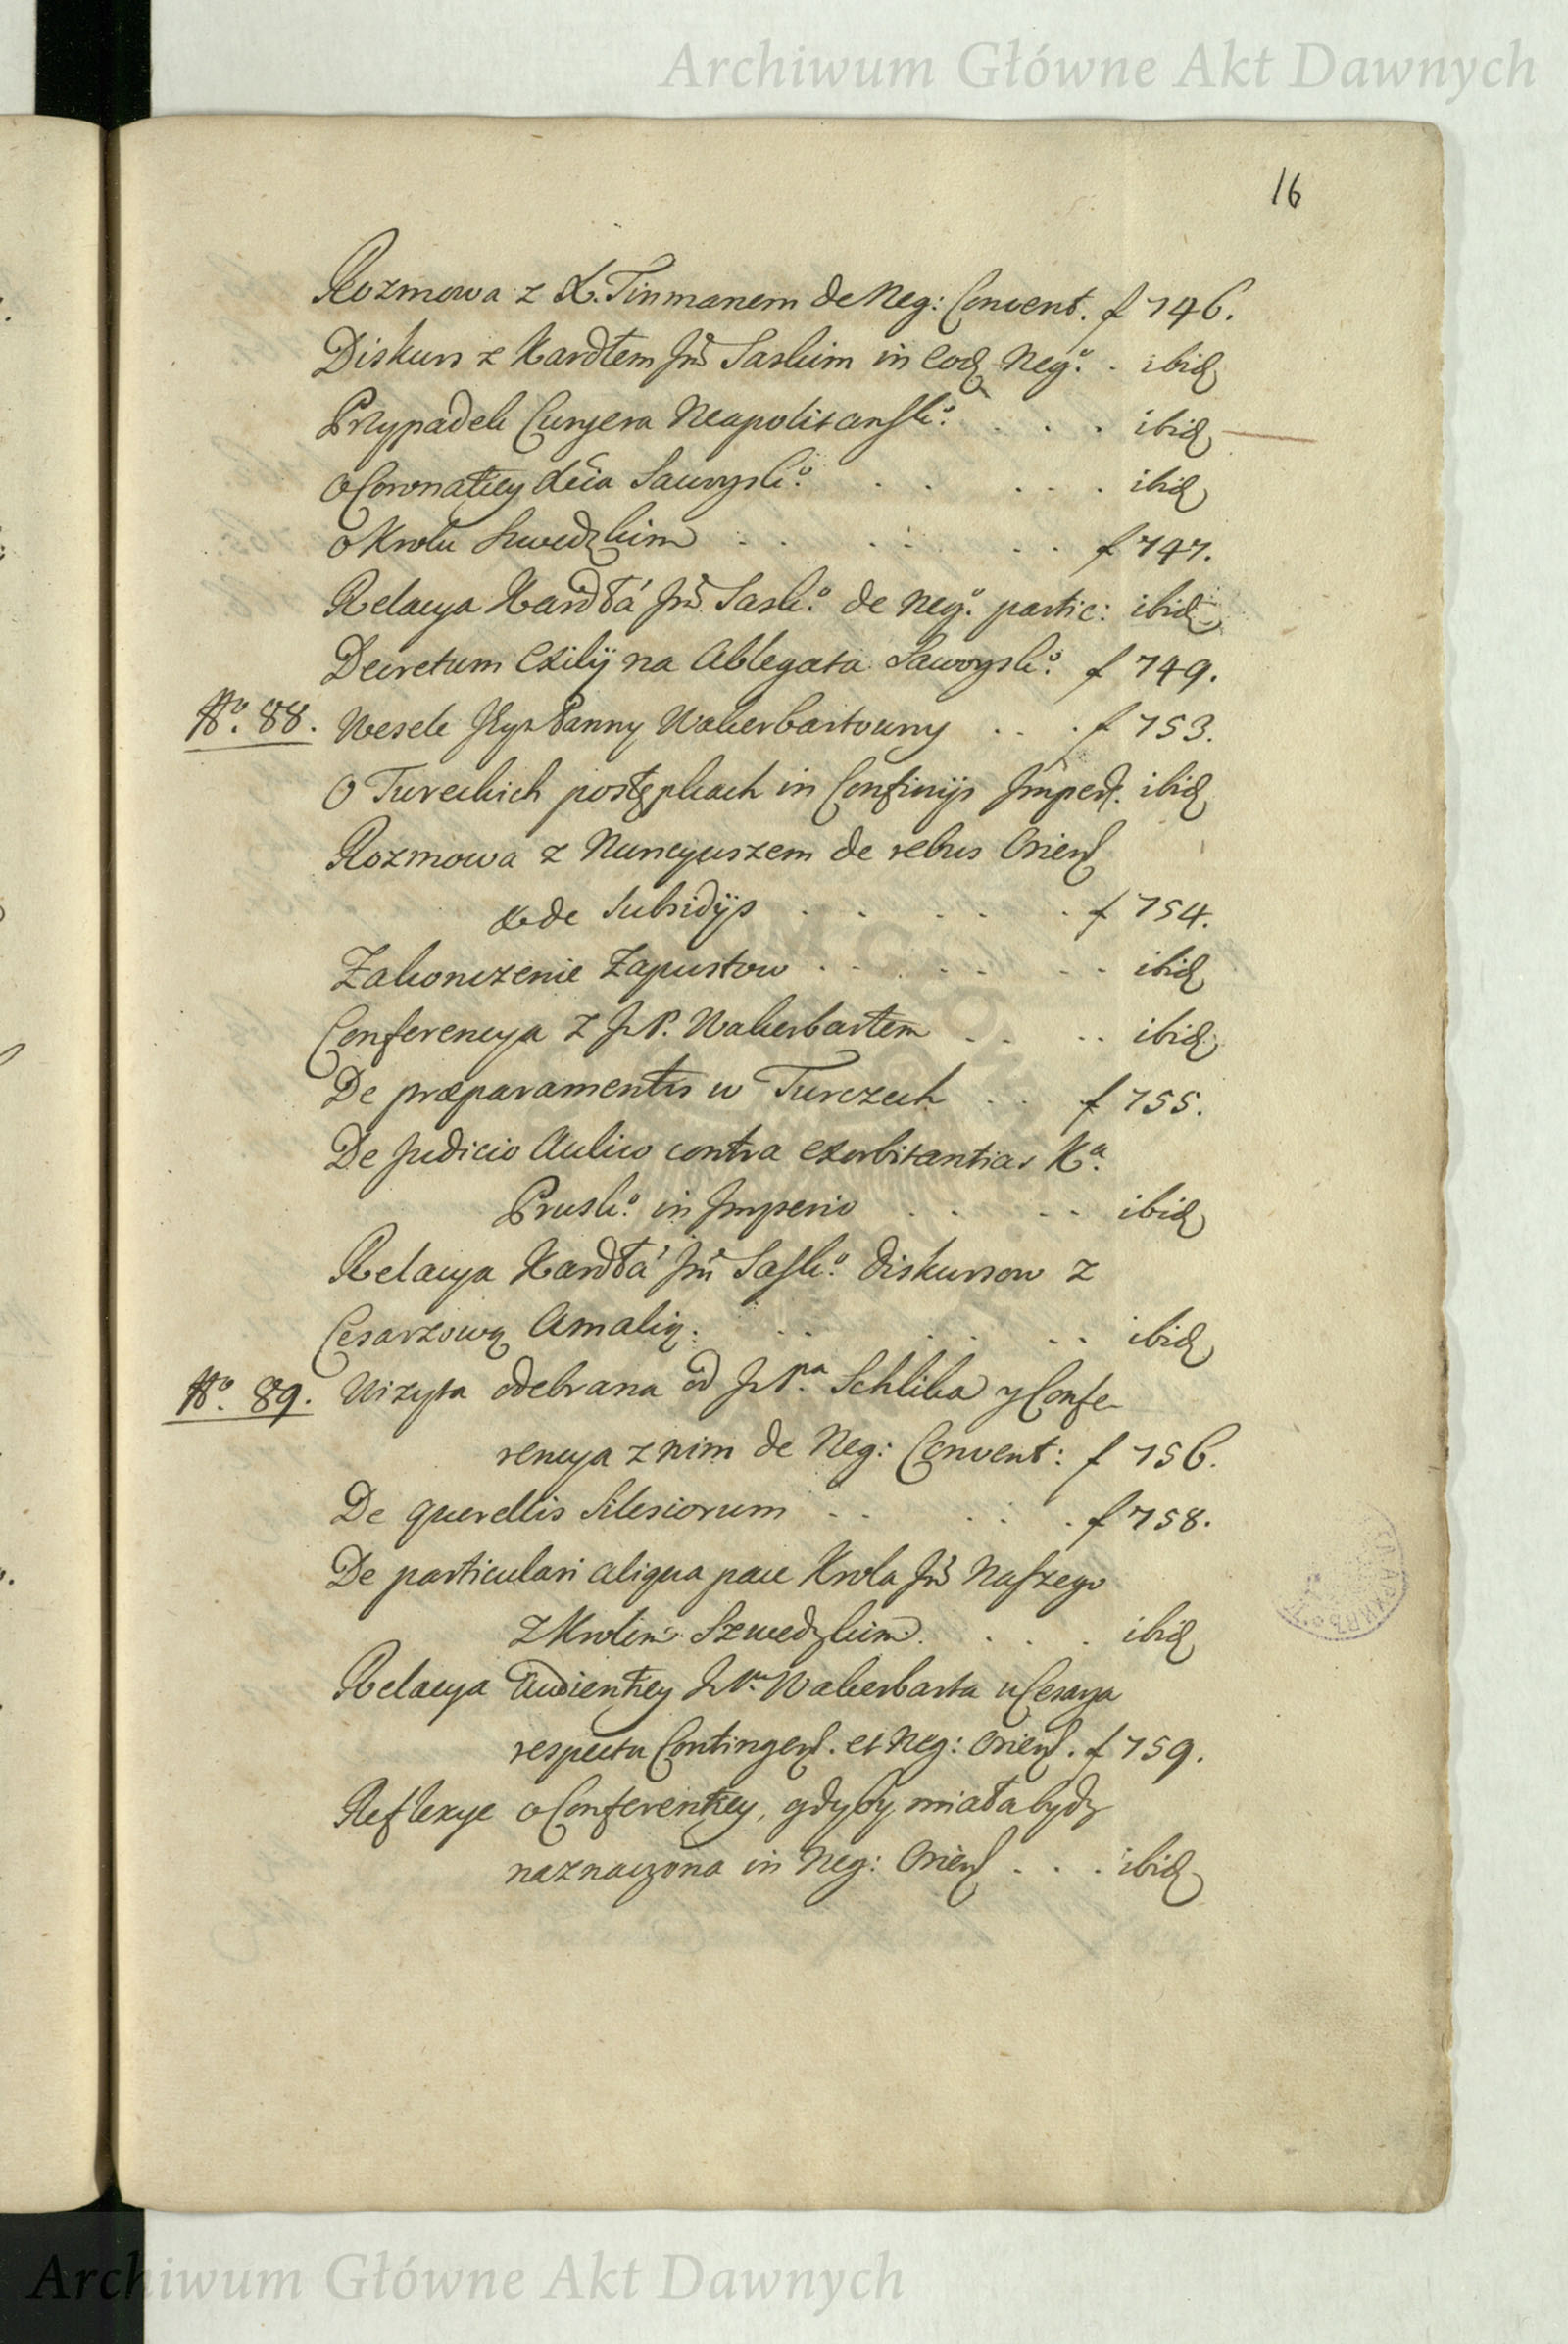 Archiwum Główne Akt Dawnych
16
Rozmowa z X. Tinmanem de Neg: Convent. f 746.
Diskurs z Kardłem Jm̃ Saskim in eod. Neg.º . ibid
Przypadek Curyera Neapolitansk.º . . . ibid
o Coronatiey Xcia Sawoysk.º . . . . . ibid
o Krolu Szwedzkim . . . . . . f 747.
Relacya Kardła Jm̃ Sask.º de Neg.º partic: ibid
Decretum Exilij na Ablegata Sawoysk.º f 749.
Nº. 88. Wesele Panny Wakerbartowny . . . f 753.
O Tureckich postępkach in Confinijs Imper. ibid
Rozmowa z Nuncyuszem de rebus Orient
& de Subsidijs . . . . . f 754.
Zakonczenie Zapustow . . . . . . ibid
Conferencya z JP. Wakerbartem . . . . ibid
De præparamentis w Turczech . . f 755.
De Judicio Aulico contra exorbitantias Kª.
Prusk.º in Imperio . . . . ibid
Relacya Kardła Jm̃ Sask.º diskursow z
Cesarzową Amalią. . . . . . . ibid
Nº. 89. Wizyta odebrana od JPª. Schlika y Confe-
rencya z nim de Neg: Convent: f 756.
De querellis Silesiorum . . . . . f 758.
De particulari aliqua pace Krola Jm̃ Naszego
z Krolem Szwedzkim. . . . . ibid
Relacya Audientiey JPª Wakerbarta u Cesarza
respectu Contingent. et Neg: Orient. f 759.
Reflexye o Conferentiey, gdyby miała bydz
naznaczona in Neg: Orient . . . ibid
Archiwum Główne Akt Dawnych